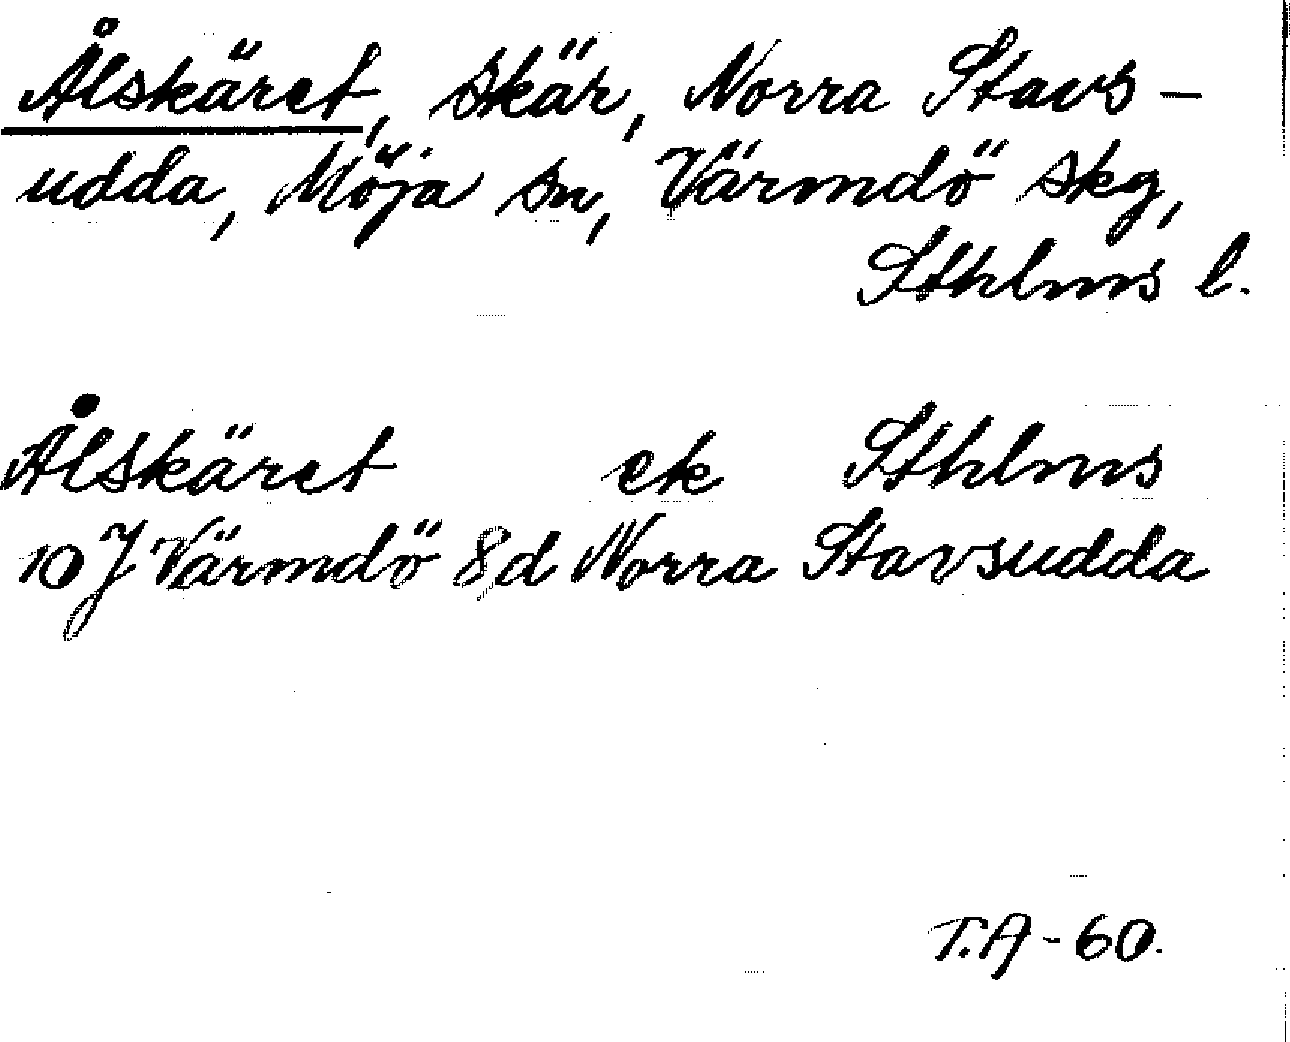 Ålskäret, skär, Norra Stavs-
udda, Möja sn, Värmdö skg,
Sthlms l.
Ålskäret ek Sthlms
10 J Värmdö 8d Norra Stavsudda
T.A-60.